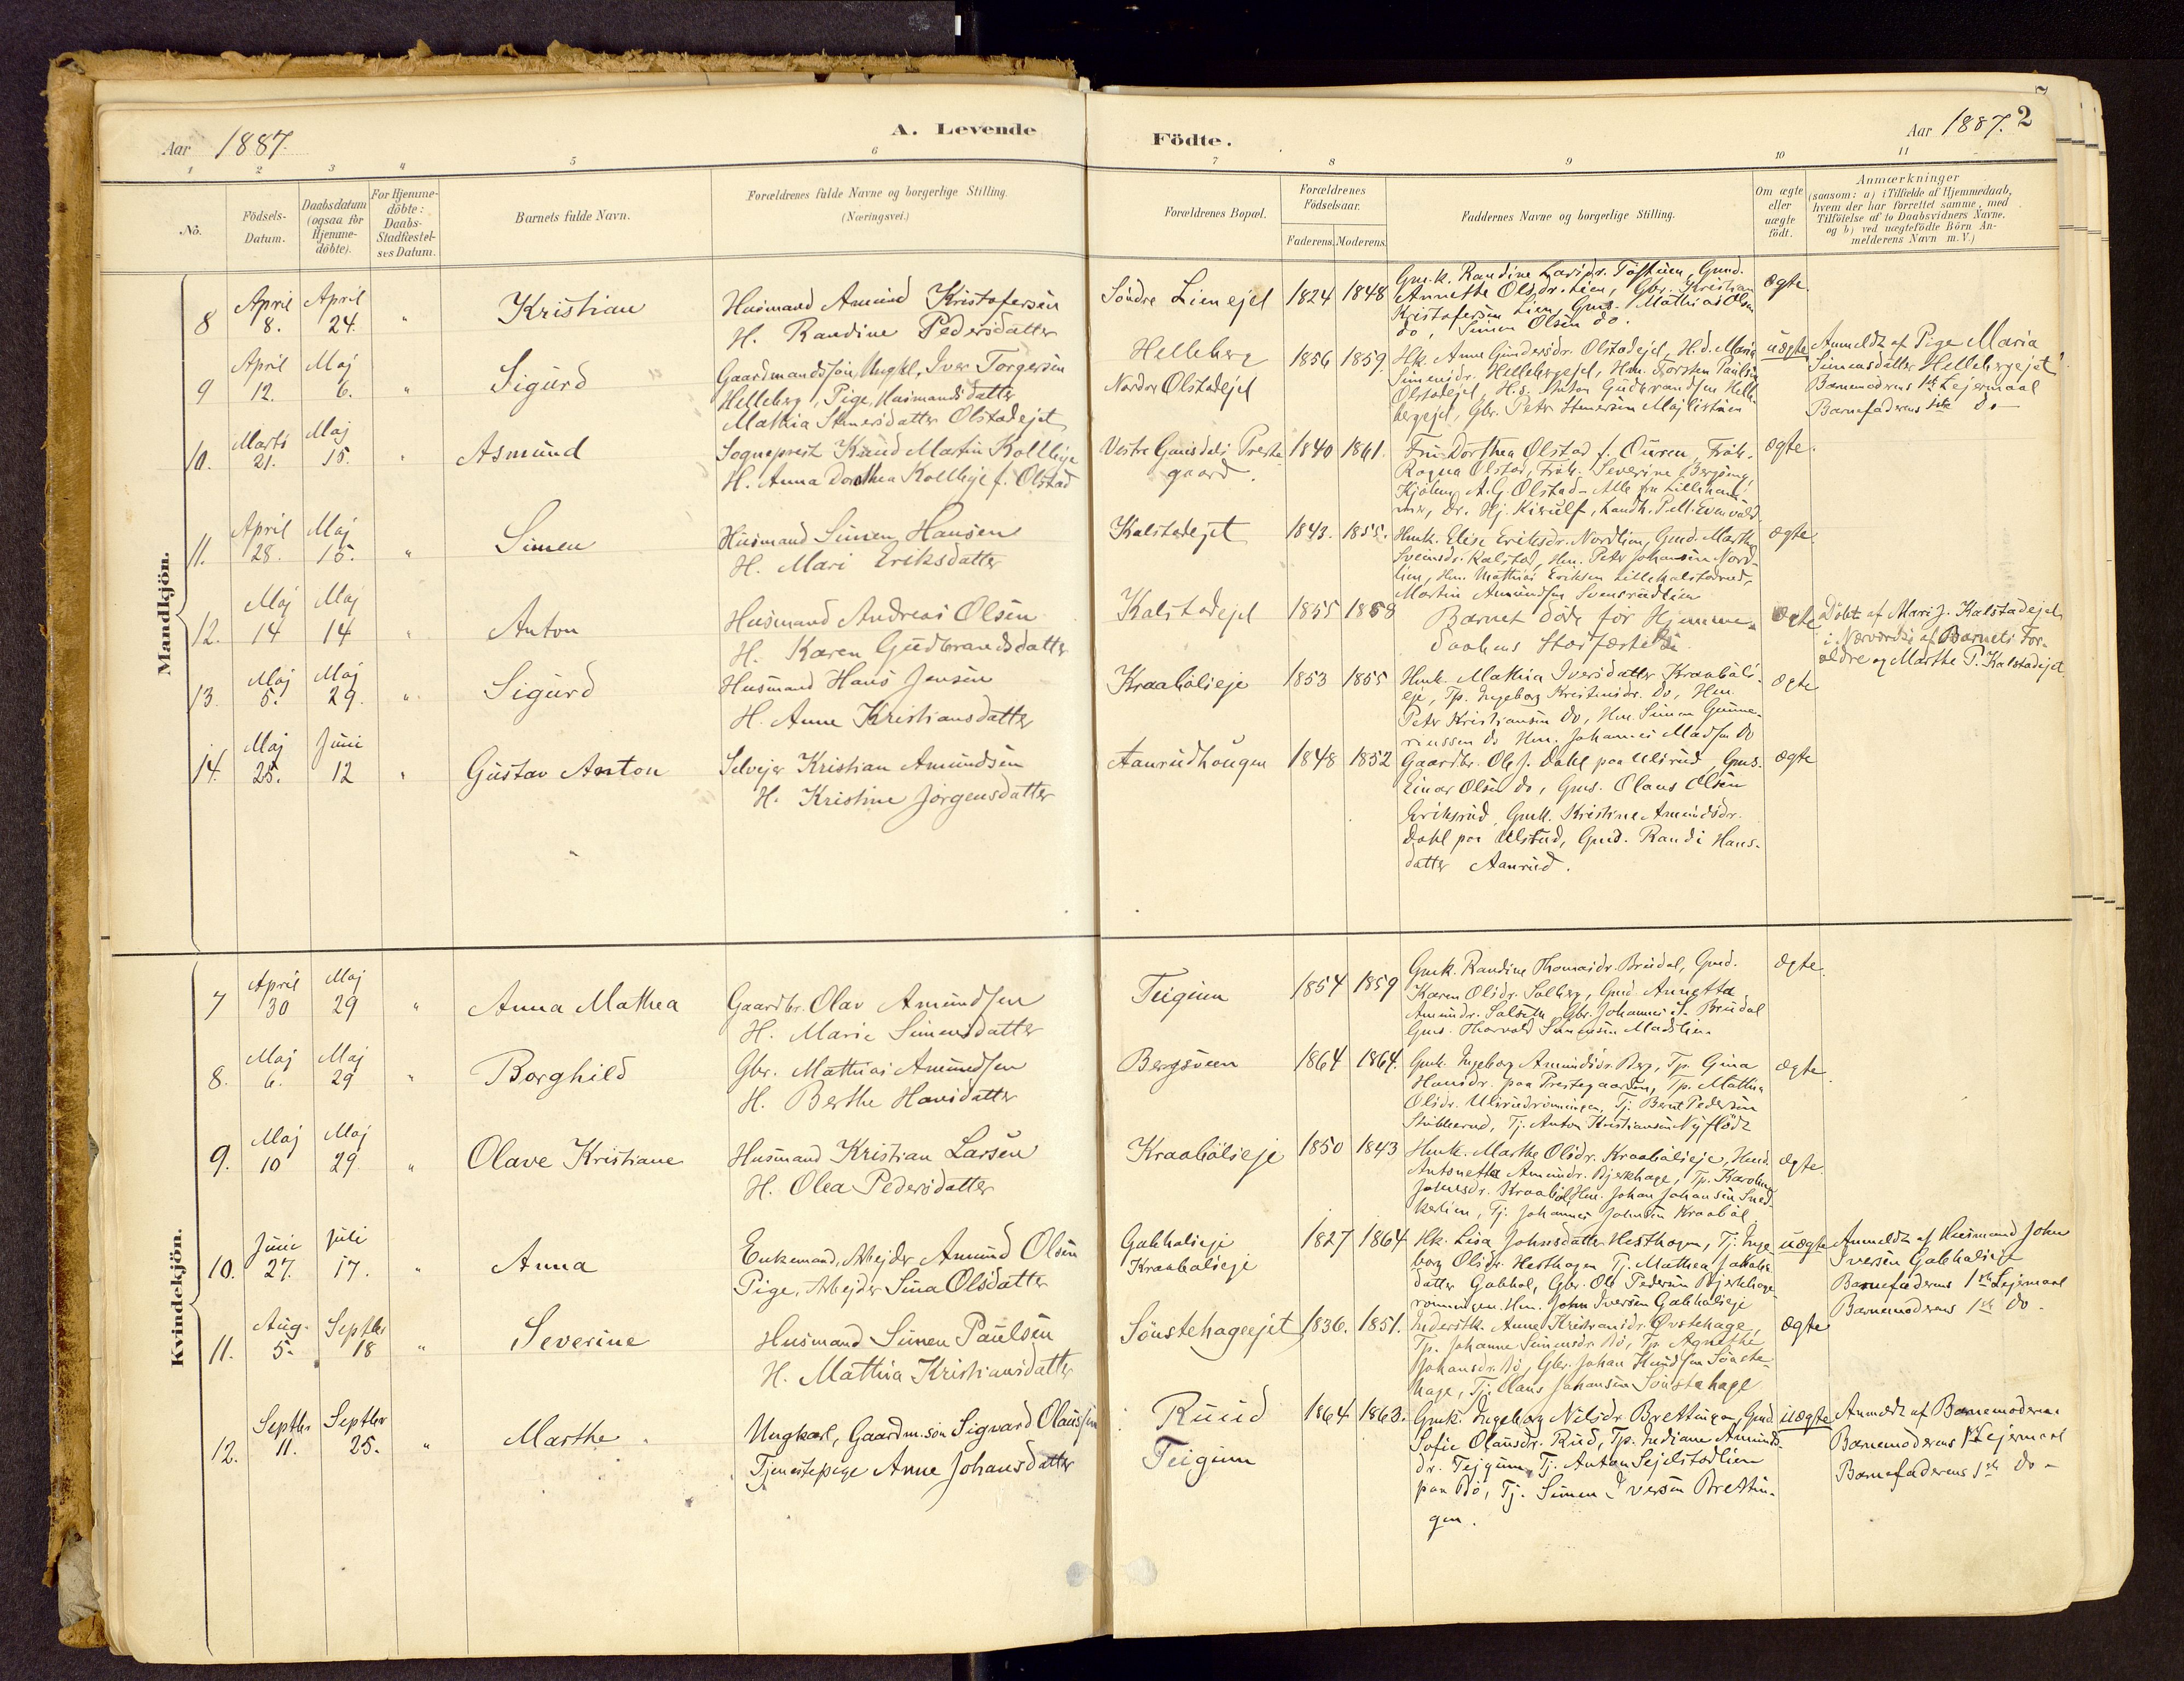 Aar 1887.
A. Levende
Födte.
Aar 1887. 2
1 2 3 4 5 6 7 8 9 10 11
No.
Födsels-Datum.
Daabsdatum (ogsaa for Hjemme-döbte).
For Hjemme-döbte: Daabs-Stadfæstel-ses Datum.
Barnets fulde Navn.
Forældrenes fulde Navne og borgerlige Stilling.
(Næringsvei.)
Forældrenes Bopæl.
Forældrenes Födselsaar.
Faderens. Moderens.
Faddernes Navne og borgerlige Stilling.
Om ægte eller uægte födt.
Anmærkninger
(saasom: a) i Tilfælde af Hjemmedaab,
hvem der har forrettet samme, med
Tilföielse af to Daabsvidners Navne,
og b) ved uægtefödte Börn An-
melderens Navn m. V.)
Mandkjön.
8 April 8. April 24. " Kristian
Husmand Amund Kristofersen
H. Randine Pedersdatter
Söndre Lien ejet 1824 1848
Gmk. Randine Larsdr. Gmd.
Annette Olsdr. Lien, Gbr. Kristian
Kristofersen Lien, Gms. Mathias Olsen
do, Simen Olsen do.
Ægte.
9 April 12. Maj 6. " Sigurd
Gaardmandssön, Ungkl, Iver Torgersen
Helleberg, Pige, Husmandsdatter
Mathia Stenersdatter Olstadejet
Helleberg
Nordre Olstadejet
1856 1859.
Hk. Anne Gundersdr. Olstadejet, H.d. Maria
Simensdr. Hellebergejet, Hm. Torsten Paulsen
Olstadejet, H.s. Anton Gudbrandsen Helle-
bergejet, Gbr. Peter Stenersen
uægte
Anmeldt af Pige Maria
Simensdatter Hellebergejet
Barnemoderens 1ste Lejermaal
Barnefaderens 1ste do
10. Marts 21. Maj 15. " Asmund
Sogneprest Knud Martin Kolltveje
H. Anna Dorothea f. Olstad
Vestre Gausdals Preste-
gaard.
1840 1861.
Fru Dorthea Olstad f. Ouren, Frök.
Ragna Olstad, Frök. Severine
Kjöbm. A.G. Olstad - Alle fra Lilleham-
mer, Dr. Hj. Kiærulf, Landh. P.M. Evenvold
ægte.
11. April 28. Maj 15. " Simen
Husmand Simen Hansen
H. Mari Eriksdatter
Kalstadejet 1843. 1855.
Hmk. Elise Eriksdr. Nordlien, Gmd. Marthe
Sveinsdr. Kalstad, Hm. Peter Johansen Nord-
lien, Hm. Mathias Eriksen
Martin Amundsen Svensrudlien
ægte.
12. Maj 14 Maj 14 " Anton
Husmand Andreas Olsen
H. Karen Gudbrandsdatter
Kalstadejet 1855 1859
Barnet döde för Hjemme-
daabens Stadfæstelse.
ægte
Döbt af Mari J. Kalstadejet
i Nærværelse af Barnets For-
ældre og Marthe P. Kalstadejet
13. Maj 5. Maj 29. " Sigurd
Husmand Hans Jensen
H. Anne Kristiansdatter
Kraabölseje 1853 1855
Hmk. Mathia Iversdatter Kraaböls-
eje, Tp. Ingeborg Kristensdr. do, Hm.
Peter Kristiansen do, Hm. Simen Gunne-
riussen do Hm. Johannes Madsen do
ægte
14. Maj 25. Juni 12 " Gustav Anton
Selvejer Kristian Amundsen
H. Kristine Jörgensdatter
Aanrudhougen 1848 1852
Gaardbr. Ole J. Dahl paa Ulsrud, Gms.
Einar Olsen do, Gms. Olaus Olsen
Eriksrud, Gmk. Kristine Amundsdr.
Dahl paa Ulsrud, Gmd. Randi Hans-
datter Aanrud.
ægte
Kvindekjön.
7 April 30 Maj 29 " Anna Mathea
Gaardbr. Olav Amundsen
H. Marie Simensdatter
Teigum 1854 1859
Gmk. Randine Thomasdr. Bredal, Gmd.
Karen Olsdr. Solberg, Gmd. Annette
Amundr. Johannes S. Bredal
Gms. Thorvald Simensen
Ægte.
8. Maj 6. Maj 29 " Borghild
Gbr. Mathias Amundsen
H. Berthe Hansdatter
Bergsveen 1864 1864.
Gmk. Ingeborg Amundsdr. Berg, Tp. Gina
Hansdr. paa Prestegaarden, Tp. Mathea
Olsdr. Ulsrudrönningen, Tj. Bernt Pedersen
Stubberud, Tj. Anton Kristiansen
ægte.
9. Maj 10 Maj 29. " Olave Kristiane
Husmand Kristian Larsen
H. Olea Pedersdatter
Kraabölseje 1850 1843
Hmk. Marthe Olsdr. Kraabölseje, Hmd.
Antonette Amundr. Bjerkhage, Tp. Karoline
Johnsdr. Kraaböl, Hm. Johan Johansen
Tj. Johannes Johnsen Kraaböl
ægte.
10. Juni 27. Juli 17. " Anna
Enkemand, Arbejder Amund Olsen
Pige, Arbejder Sina Olsdatter
Gabbalseje
Kraabölseje
1827 1864
Hk. Lisa Johnsdatter Hesthagen, Tj. Inge-
borg Olsdr. Hesthagen, Tj. Mathea
datter Gabbal, Gbr. Ole Pedersen Bjerkhage-
rönningen Hm. John Iversen Gabbalseje
uægte
Anmeldt af Husmand John
Iversen Gabbalseje
Barnefaderens 1ste Lejermaal
Barnemoderens 1ste do.
11. Aug. 5. Septbr 18 " Severine
Husmand Simen Paulsen
H. Mathia Kristiansdatter
Sönstehageejet 1836. 1851.
Inderstk. Anne Kristiansdr.
Tp. Johanne Simensdr. Bö, Tp. Agnethe
Johansdr. Bö, Gbr. Johan Knudsen Sönste-
hage, Tj. Hans Johansen Sönstehage
ægte
12. Septbr 11. Septbr 25. " Marthe
Ungkarl, Gaardm.sön Sigvard Olaussen
Tjenestepige Anne Johansdatter
Ruud
Teigum
1864 1863.
Gmk. Ingeborg Nilsdr. Brettingen, Gmd
Sofie Olausdr. Rud, Tp. Indiane Amunds-
dr. Teigum, Tj. Anton Sejelstadlien
paa Bö, Tj. Simen Iversen Brettin-
gen.
uægte
Anmeldt af Barnemoderen
Barnemoderens 1ste Lejermaal
Barnefaderens 1ste do